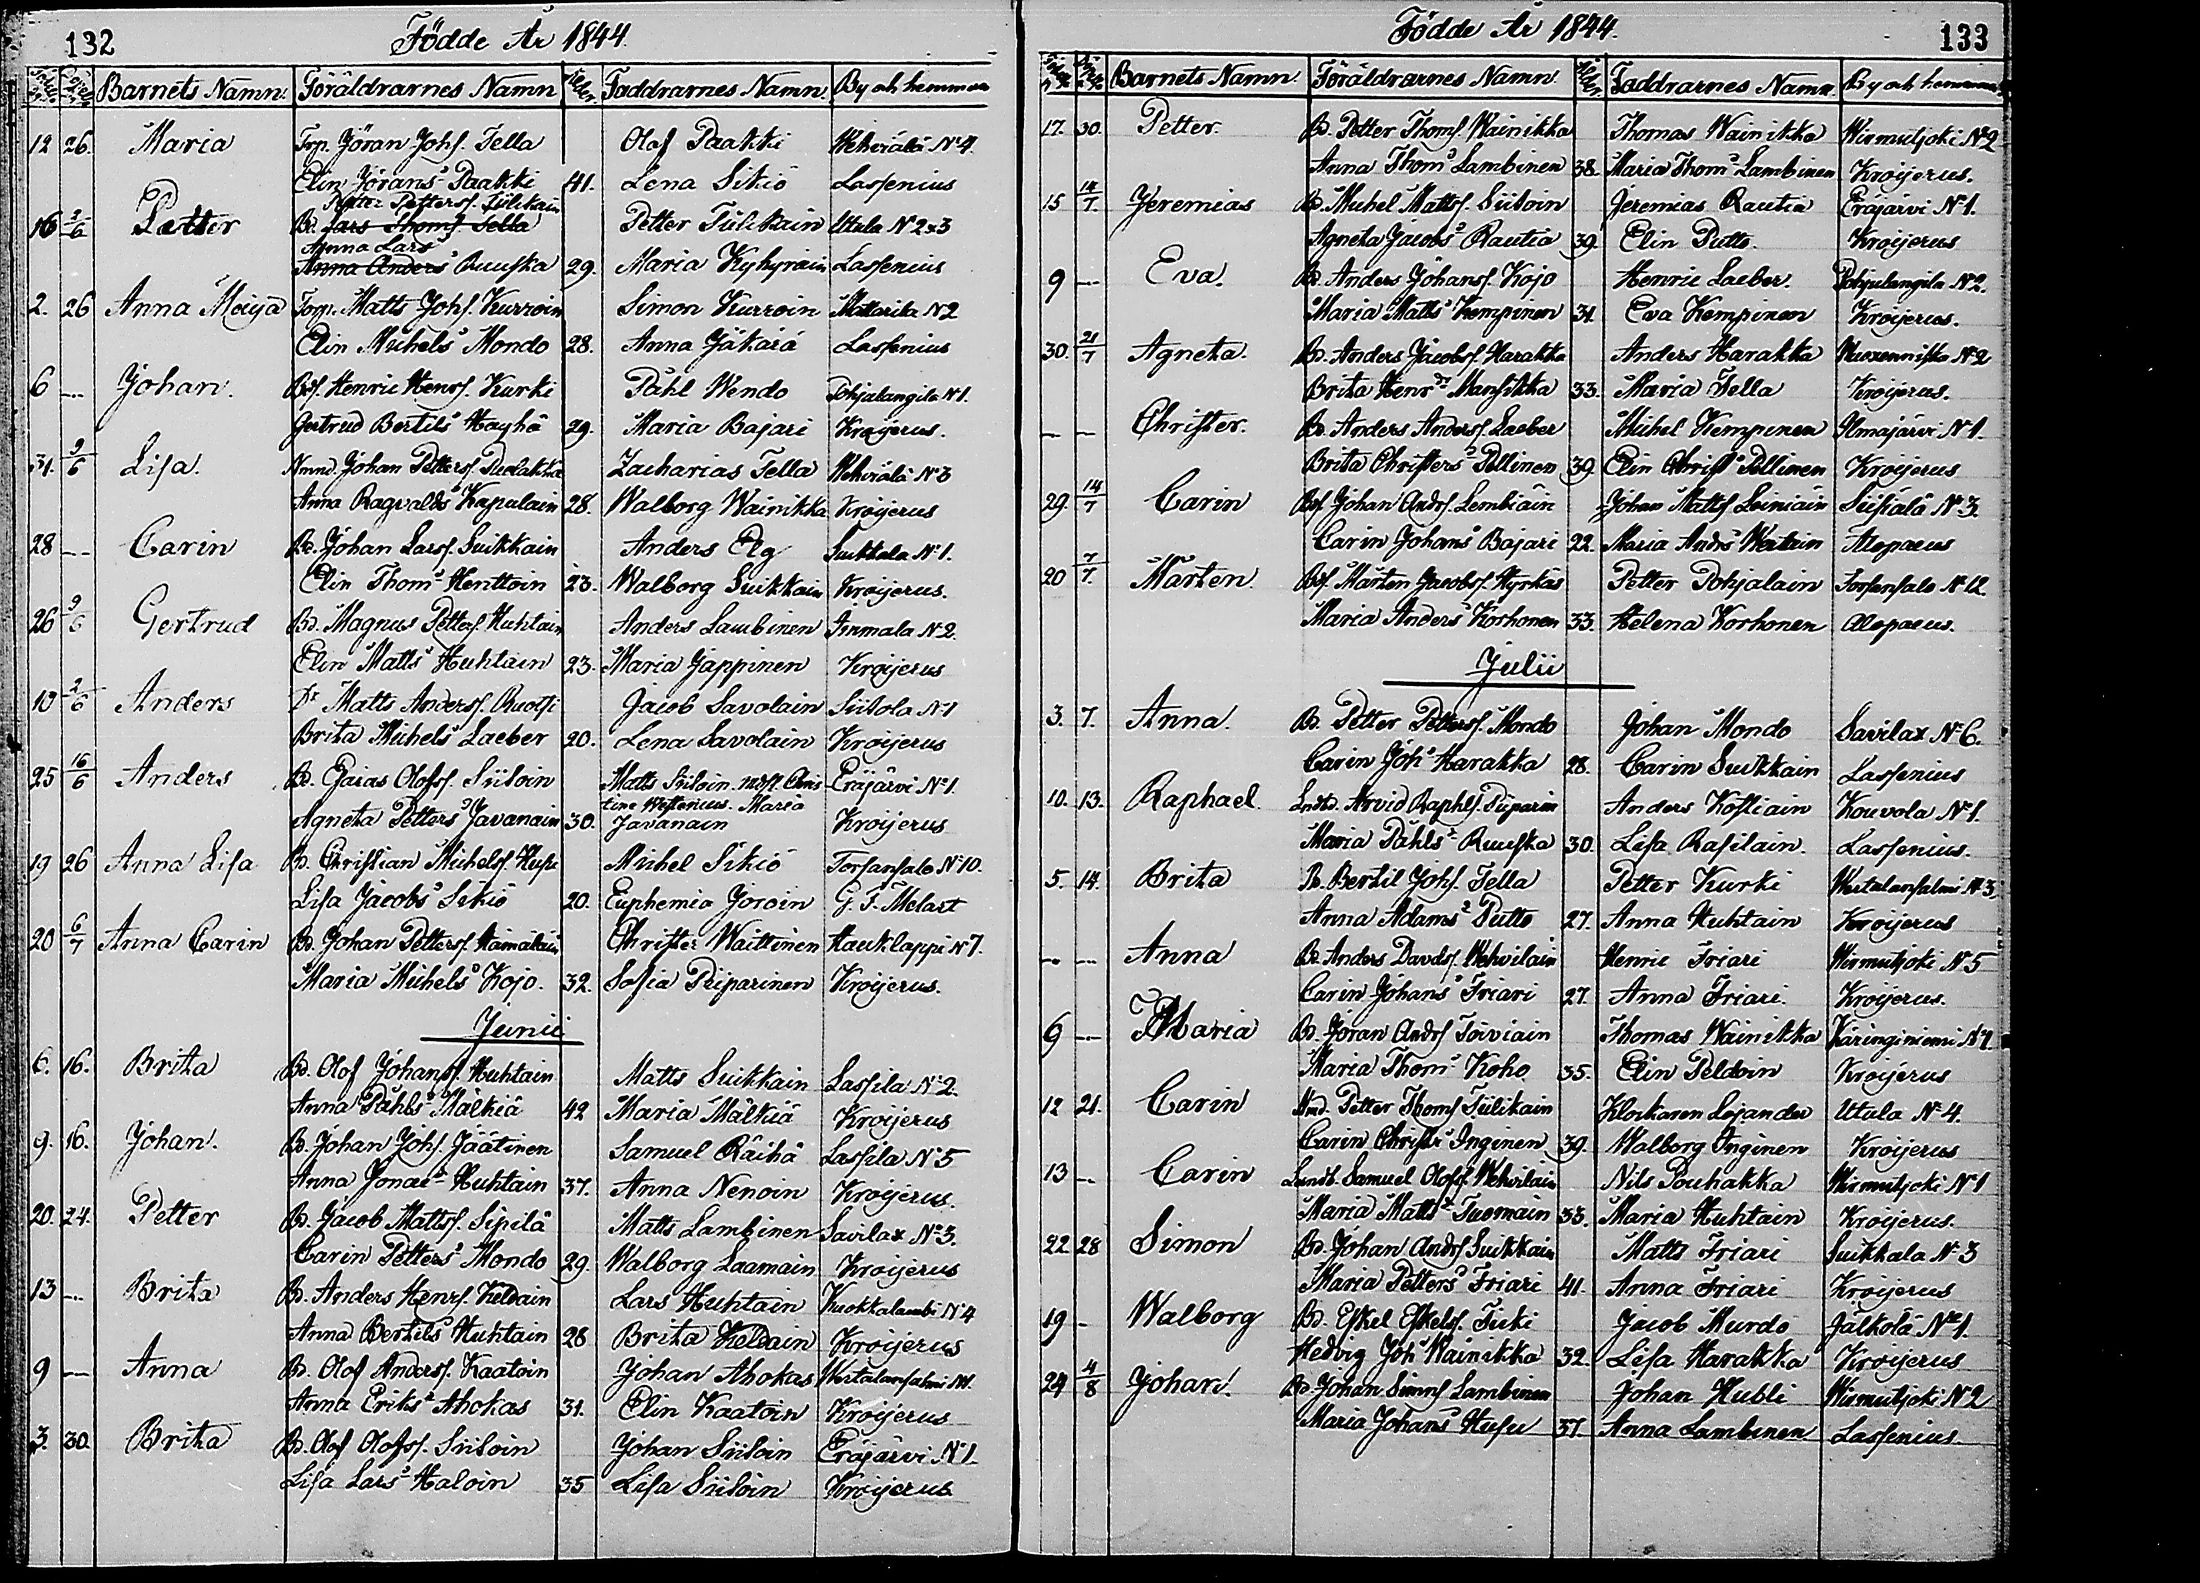 132
Födde År 1844.
Barnets Namn. Föräldrarnes Namn Ålder. Faddrarnes Namn. By och hemman
12 26. Maria Trp. Jöran Johs. Tella Olof Paakki Wehviälä No 4.
Elin Jörans Paakki 41. Lena Sikiö Lassenius
Petter Petterss. Tülikain
16 2/6 Petter Bd. Lars Thoms. Tella Petter Tülikain Utula No 2 x 3
Anna Lars
Anna Anders Ruuska 29. Maria Kyhyräin Lassenius
2. 26 Anna Maija Torp. Matts Johs. Kurroin Simon Kurroin Mattarila No 2
Elin Michels Mondo 28. Anna Jäkärä Lassenius
6 -- Johan. Bds. Henric Henrs. Kurki Påhl Wendo Pohjalangila No 1.
Gertrud Bertils Hayhä 29. Maria Bajari Kröijerus.
31. 9/6 Lisa. Nmnd. Johan Petters. Pielakka Zacharias Tella Wehviälä No 3
Anna Ragvalds Kapalain 28. Walborg Wainikka Kröijerus
28 -- Carin Bd. Johan Larss. Suikkain Anders Elg Suikkala No 1.
Elin Thoms Henttoin 23. Walborg Suikkain Kröijerus.
26 9/6 Gertrud Bd. Magnus Petters. Huhtain Anders Lambinen Immala No 2.
Elin Matts Huhtain 23. Maria Jäppinen Kröijerus
10 2/6 Anders Dr Matts Anderss. Ruotsi Jacob Savolain Siitola No 1
Brita Michels Laeber 20. Lena Savolain Kröijerus
25 16/6 Anders Bd. Esaias Olofss. Siitoin Matts Siitoin. Chris Eräjärvi No 1.
tine Westenius. Maria
Agneta Petters Javanain 30. Javanain Kröijerus
19 26 Anna Lisa Bd. Christian Michelss. Husu Michel Sikiö Torsansalo No 10.
Lisa Jacobs Sikiö 20. Euphemia Joroin G. F. Melart
20 6/7 Anna Carin Bd. Johan Petterss. Hämäläin Christer Waittinen Hauklappi No 7.
Maria Michels Kojo. 32. Sofia Piiparinen Kröijerus.
Junii
6. 16. Brita Bd. Olof Johanss. Huhtain Matts Suikkain Lassila No 2.
Anna Påhls Mälkiä 42 Maria Mälkiä Kröijerus
9. 16. Johan. Bd. Johan Johs. Jäätinen Samuel Räihä Lassila No 5
Anna Jonae Huhtain 37. Anna Nenoin Kröijerus.
20. 24. Petter Bd. Jacob Mattss. Sipilä Matts Lambinen Savilax No 3.
Carin Petters Mondo 29. Walborg Laamain Kröijerus
13 -- Brita Bd. Anders Henrs. Keldain Lars Huhtain Kuokkalambi No 4
Anna Bertils Huhtain 28 Brita Keldain Kröijerus
9 -- Anna Bd. Olof Anderss. Kaatoin Johan Ahokas Wertalansalmi No 1.
Anna Eriks Ahokas 31. Elin Kaatoin Kröijerus
3. 30. Brita Bd. Olof Olofss. Siitoin Johan Siitoin Eräjärvi No 1.
Lisa Lars Haloin 35 Lisa Siitoin Kröijerus
Födde År 1844.
133
Barnets Namn. Föräldrarnes Namn Ålder. Faddrarnes Namn. By och hemman
17. 30. Petter. Bd. Petter Thoms. Wainikka Thomas Wainikka Wirmutjoki No 2
Anna Thoms Lambinen 38. Maria Thoms Lambinen Kröijerus.
15 14/7. Jeremias Bd. Michel Mattss. Siitoin Jeremias Rautia Eräjärvi No 1.
Agneta Jacobs Rautia 39. Elin Putto. Kröijerus
9 -- Eva. Bd. Anders Johanss. Kojo Henric Laeber. Pohjalangila No 2.
Maria Matts Kempinen 31. Eva Kempinen Kröijerus.
30. 21/7 Agneta. Bd. Anders Jacobss. Harakka Anders Harakka Wuoxenniska No 2
Brita Henrs Mansikka 33. Maria Tella Kröijerus.
-- -- Christer. Bd. Anders Anderss. Laeber Michel Kempinen Ilmajärvi No 1.
Brita Christers Pellinen 39. Elin Christs Pellinen Kröijerus
29. 14/7 Carin Bds. Johan Andrs. Lembiäin Johan Mattss. Leiniäin Siisiälä No 3.
Carin Johans Bajari 22. Maria Andrs Weitain Alopaeus
20 7/7. Mårten. Bds Mårten Jacobss. Hyrkäs Petter Pohjalain Torsansalo No 12
Maria Anders Korhonen 33. Helena Korhonen Alopaeus.
Julii
3. 7. Anna. Bd. Petter Petterss. Mondo Johan Mondo Savilax No 6.
Carin Johs Harakka 28. Carin Suikkain Lassenius
10. 13. Raphael. Lndbd. Arvid Raphls. Piiparin Anders Kostiain Kouvola No 1.
Maria Påhls Ruuska 30. Lisa Rasilain. Lassenius.
5. 14. Brita Bd. Bertil Johs. Tella Petter Kurki Wertalansalmi No 3.
Anna Adams Putto 27. Anna Huhtain Kröijerus
-- -- Anna Bd. Anders Davds. Wehvilain Henric Friari Wirmutjoki No 5
Carin Johans Friari 27. Anna Friari. Kröijerus.
6 -- Maria Bd. Jöran Andrs Toiviain Thomas Wainikka Käringiniemi No 4.
Maria Thoms Koho 35. Elin Peldoin Kröijerus
12 21. Carin Nmd. Petter Thoms Tiilikain Klockaren Lojander Utula No 4.
Carin Christs Inginen 39. Walborg Inginen Kröijerus
13 -- Carin Lundb. Samuel Olofss. Wehvilain Nils Pouhakka Wirmutjoki No 1
Maria Matts Tuomain 33. Maria Huhtain Kröijerus.
22 28 Simon Bd. Johan Andrs Suikkain Matts Friari Suikkala No 3
Maria Petters Friari 41. Anna Friari Kröijerus
19 - Walborg Bd. Eskel Eskels. Tiuki Jacob Murdo Jälkölä No 1.
Hedvig Johs Wainikka 32. Lisa Harakka Kröijerus
24 4/8 Johan. Bd. Johan Simns Lambinen Johan Hubli Wirmutjoki No 2
Maria Johans Husu 37. Anna Lambinen Lassenius.